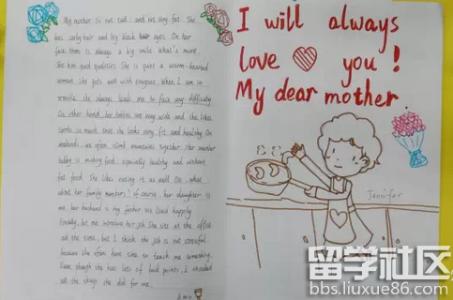 My mother is not tall and not very fat. She
has curly hair and big black eyes. On her
face there is always a big smile. What's more,
She has good qualities. She is quite a warm-hearted
woman. She gets well with everyone. When I am in
trouble, she always teach me to face any difficulty
On other hand, her hobbies are very wide and she likes
sports so much that she looks very fit and healthy. On
weekends, we often climb mountains together. Her another
hobby is making food, especially healthy and without
fat food. She likes eating it as well. Oh, what
about her family members? Of course, her daughter is
me, her husband is my father. We lived happily
Finally, let me introduce her job. She sits at the office
all the time, but I think the job is not stressful
because she often have time to teach me something.
Even though she has lots of bad points, I
all the things she did for me.
I will always
love you!
My dear mother
Jennifer
留学社区
bbs.liuxue86.com